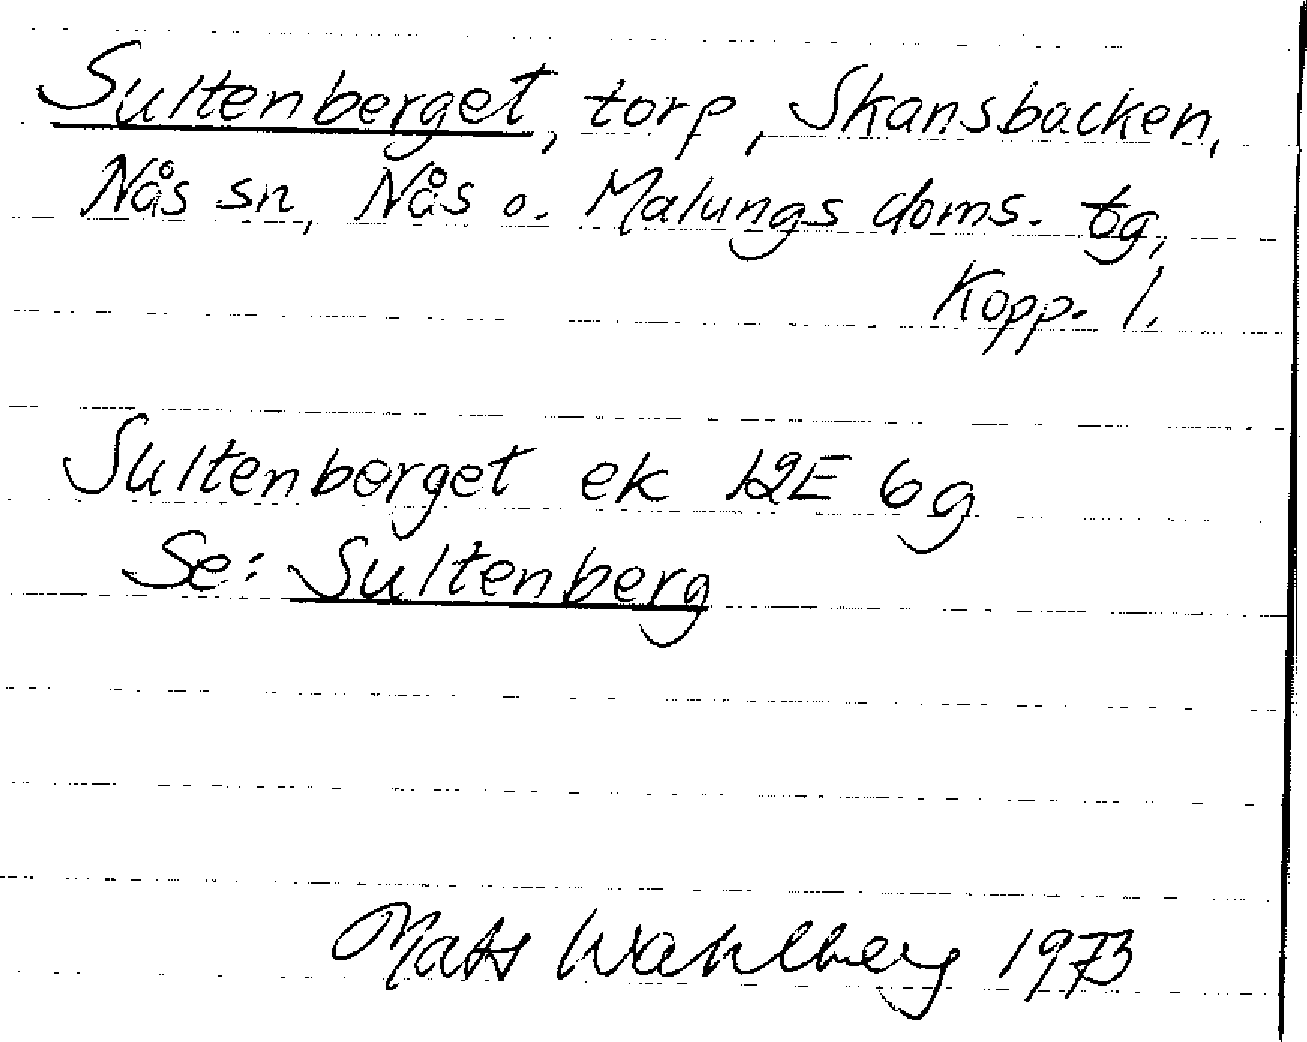 Sultenberget, torp, Skansbacken,
Nås sn, Nås o. Malungs doms. tg,
Kopp. l.
Sultenberget ek 12E 6g
Se: Sultenberg
Mats Wahlberg 1973